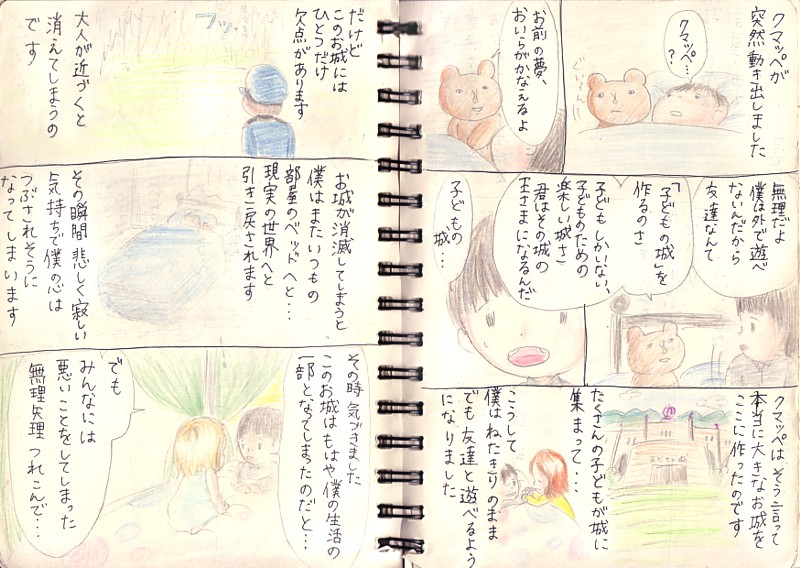 クマッペが
突然動き出しました
クマッペ…
？
ぐいーん
お前の夢、
おいらがかなえるよ
無理だよ
僕は外で遊べ
ないんだから
友達なんて
「子どもの城」を
作るのさ
子どもしかいない、
子どものための
楽しい城さ
君はその城の
王さまになるんだ
子どもの
城…
クマッペはそう言って
本当に大きなお城を
ここに作ったのです
たくさんの子どもが城に
集まって…
こうして
僕はねたきりのまま
でも友達と遊べるよう
になりました
だけど
このお城には
ひとつだけ
欠点があります
フッ…
大人が近づくと
消えてしまうの
です
お城が消滅してしまうと
僕はまたいつもの
部屋のベッドへと…
現実の世界へと
引き戻されます
その瞬間悲しく寂しい
気持ちで僕の心は
つぶされそうに
なってしまいます
その時気づきました
このお城はもはや僕の生活の
一部となってしまったのだと…
でも
みんなには
悪いことをしてしまった
無理矢理つれこんで…